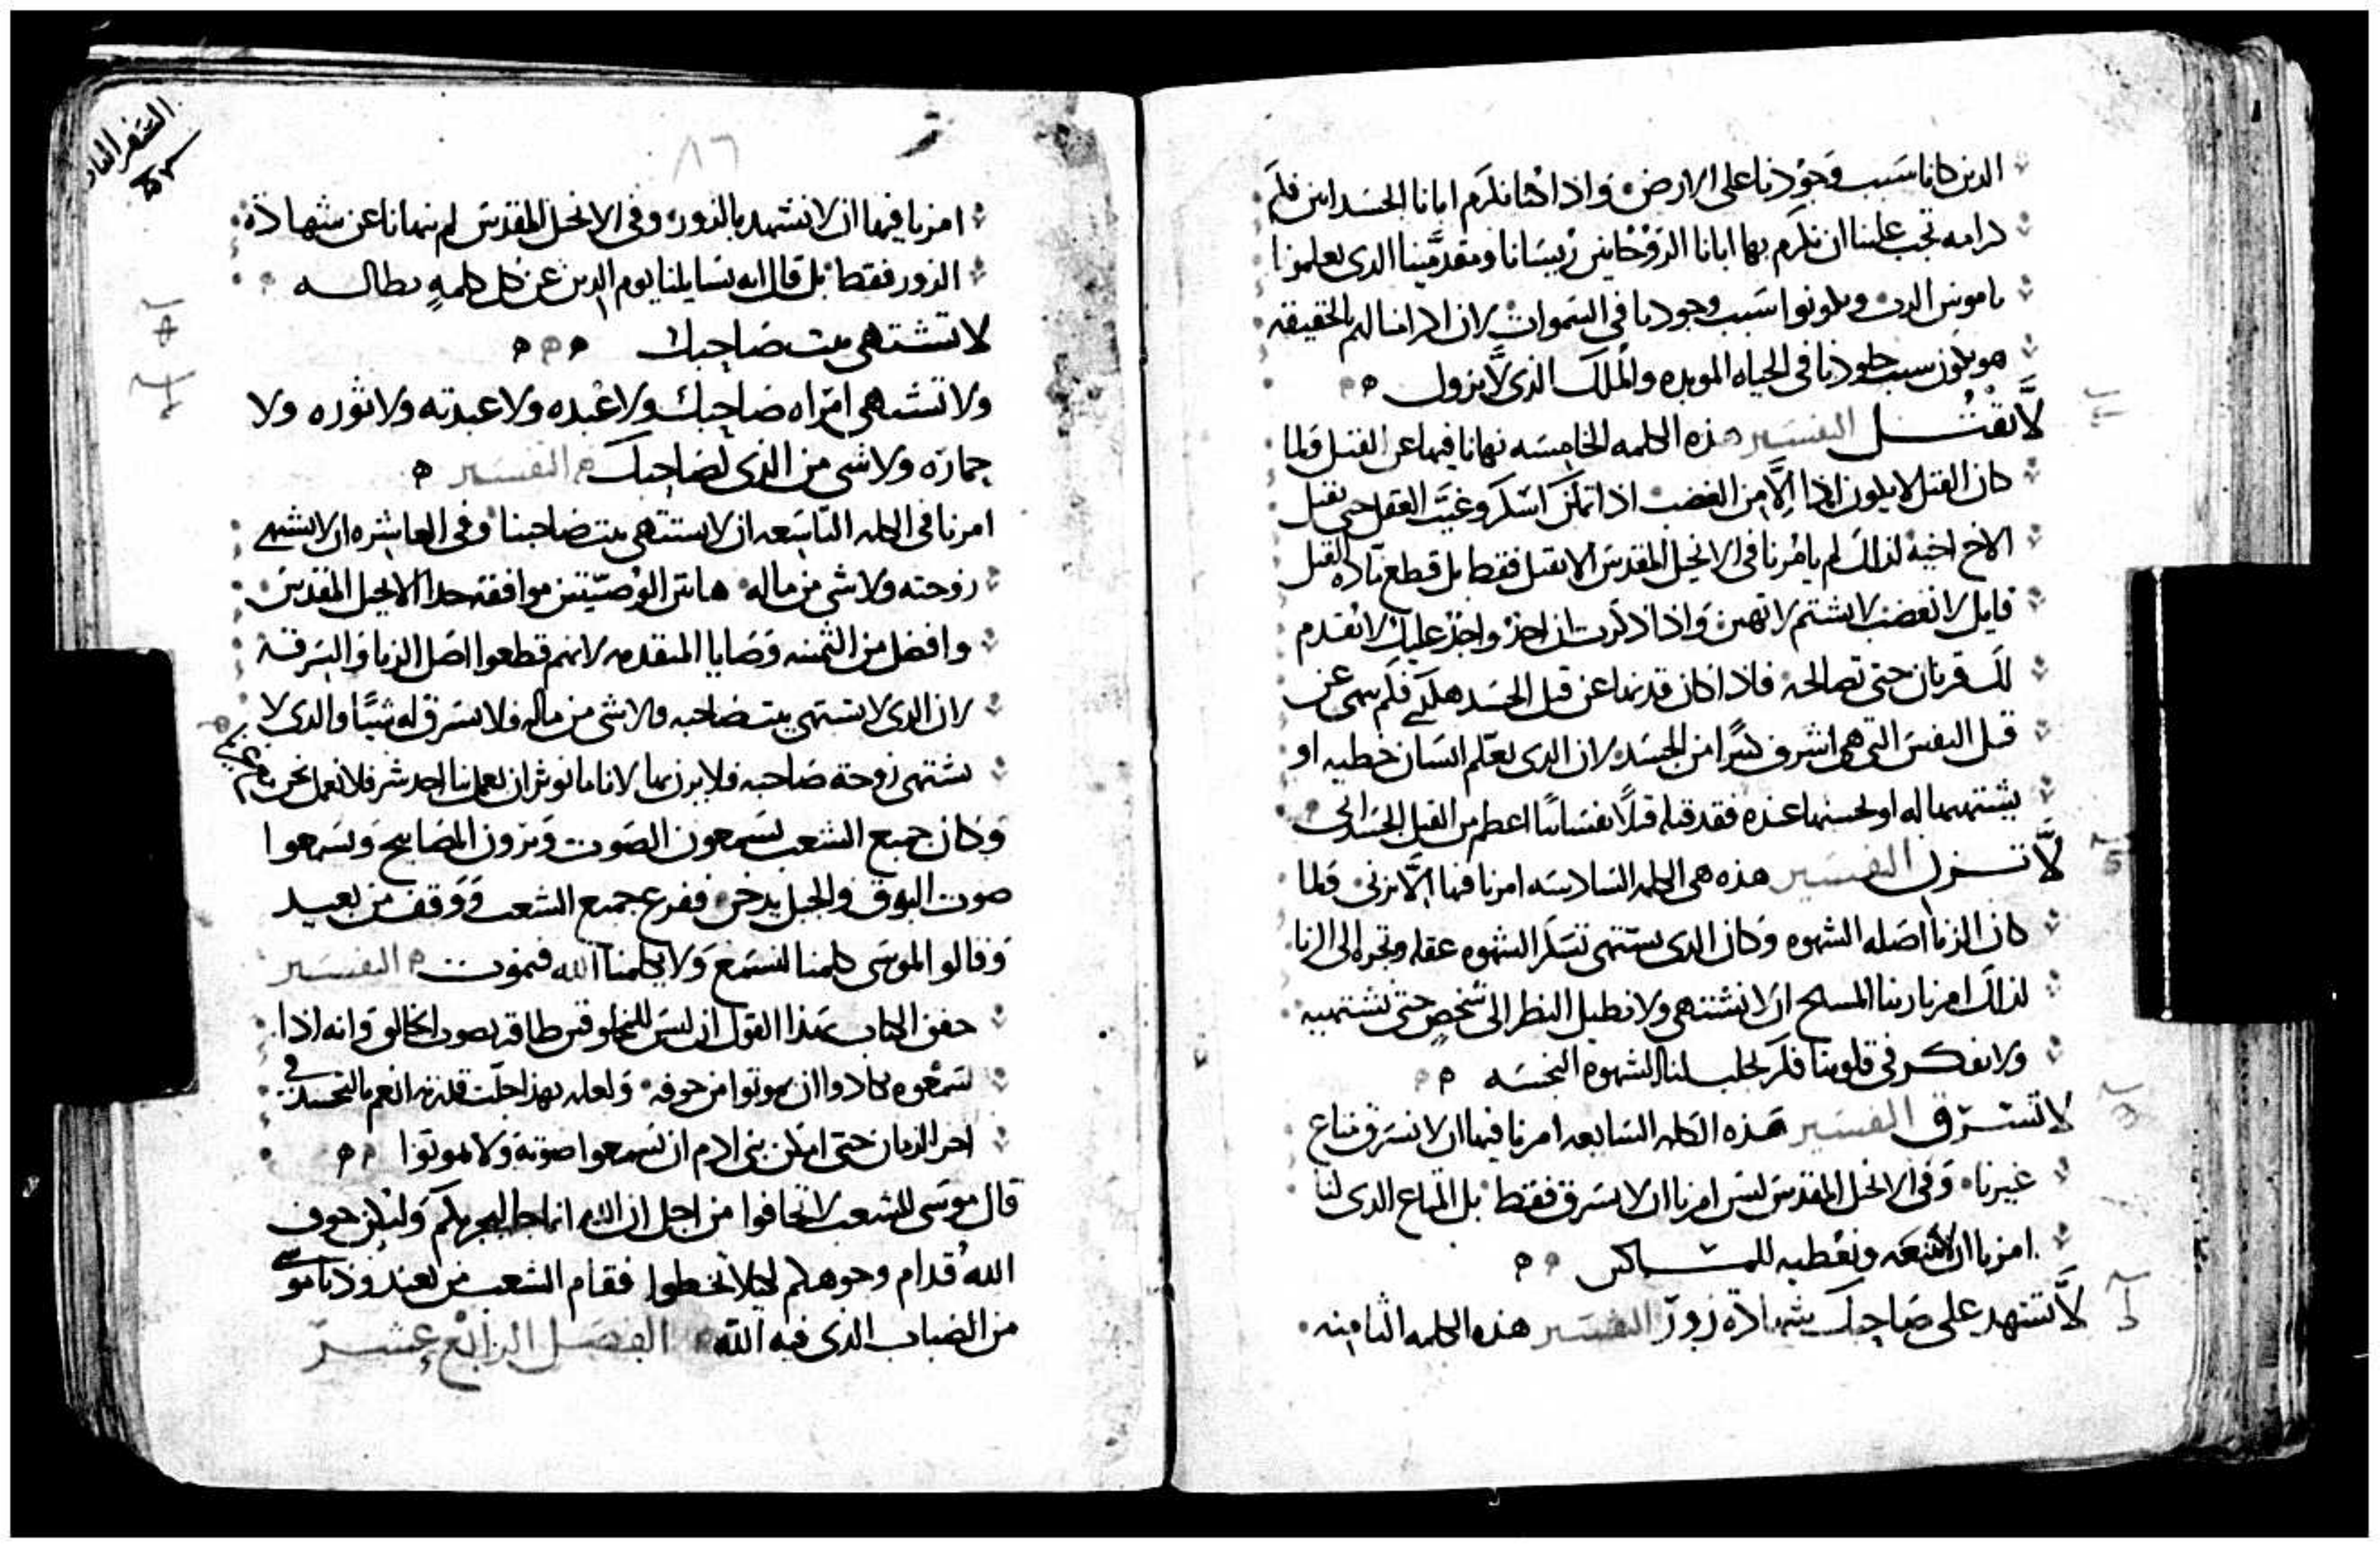 الدين كانا سبب وجودنا على الارض واذا كنا نكرم ابانا الجسدانين فكم
كرامه تجب علينا ان نكرم بها ابانا الروحانيين ريسانا ومقدمينا الدى يعلمونا
ناموس الرب ويكونوا سبب وجودنا فى السموات لان اكرامنا لهم بالحقيقه
هو يكون سبب خلودنا فى الحياه الموبده والملك الذى لا يزول
لا تقتل التفسير هذه الكلمه الخامسه نهانا فيها عن القتل ولما
كان القتل لا يكون ابدا الا من الغضب اذا تمكن اسكر وغيب العقل حتى يقتل
الاخ اخيه لذلك لم يامرنا فى الانجيل المقدس الا نقتل فقط بل قطع ماده القتل
قايل لا تغضب لا تشتم لا تهين واذا ذكرت ان احد واجد عليك لا تقدم
لك قربان حتى تصالحه فاذا كان قد نهنا عن قتل الجسد هكذى فكم نهى عن
قتل النفس التى هى اشرف كثيرا من الجسد لان الدى يعلم انسان خطيه او
يشتهيها له او يحسنها عنده فقد قتله قتلا نفسانيا اعظم من القتل الجسدانى
لا تزن التفسير هذه هى الكلمه السادسه امرنا فيها الا نزنى ولما
كان الزنا اصله الشهوه وكان الدى يشتهى تسكر الشهوه عقله وتجره الى الزنا
لذلك امرنا ربنا المسيح ان لا نشتهى ولا نطيل النظر الى شخص حتى نشتهيه
ولا نفكر فى قلوبنا فكر يجلب لنا الشهوه النجسه
لا تسرق التفسير هذه الكلمه السابعه امرنا فيها ان لا نسرق متاع
غيرنا وفى الانجيل المقدس ليس امرنا ان لا نسرق فقط بل المتاع الدى لنا
امرنا ان ونعطيه للمساكين
لا تشهد على صاحبك شهادة زور التفسير هذه الكلمه الثامنه
السفر الثانى
٨٦
امرنا فيها ان لا نشهد بالزور وفى الانجيل المقدس لم ينهانا عن شهادة
الزور فقط بل قال انه يسايلنا يوم الدين عن كل كلمه بطاله
لا تشتهى بيت صاحبك
ولا تشتهى امراه صاحبك ولا عبده ولا عبدته ولا ثوره ولا
حماره ولا شى من الذى لصاحبك التفسير
امرنا فى الكلمه التاسعه ان لا نشتهى بيت صاحبنا وفى العاشره ان لا نشتهى
زوجته ولا شى من ماله هاتين الوصيتين موافقه جدا الانجيل المقدس
وافضل من الثمنيه وصايا المتقدمه لانهم قطعوا اصل الزنا والسرقه
لان الدى لا يشتهى بيت صاحبه ولا شى من ماله فلا يسرق له شيًا والدى لا
يشتهى زوجة صاحبه فلا يزنى بها لاننا ما نوثر ان يعمل بنا احد شر فلا نعمل نحن
وكان جميع الشعب يسمعون الصوت ويرون المصابيح ويسمعوا
صوت البوق والجبل يدخن ففزع جميع الشعب ووقف من بعيد
وقالوا لموسى كلمنا لنسمع ولا يكلمنا الله فنموت التفسير
حقق الكتاب بهذا القول ان ليس للمخلوقين طاقه بصوت الخالق وانه اذا
سمعوه كادوا ان يموتوا من خوفه ولعله بهذا جلت قدرته انعم بالتجسد فى
اخر الزمان حتى امكن بنى ادم ان يسمعوا صوته ولا يموتوا
قال موسى للشعب لا تخافوا من اجل ان الله انما جا ليجربكم وليكن خوف
الله قدام وجوهكم ليلا تخطوا فقام الشعب من بعيد ودنا موسى
من الضباب الذى فيه الله الفصل الرابع عشر